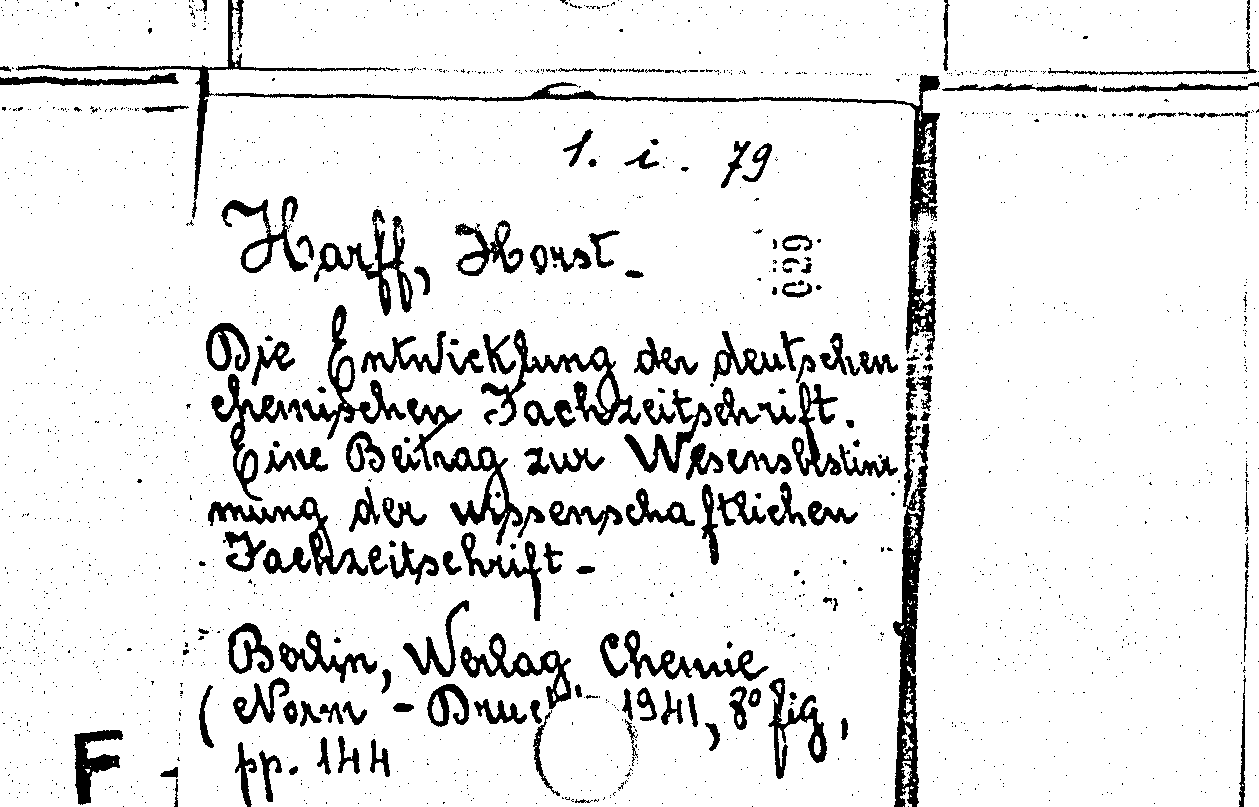 1. i. 79
Harff, Horst_
029
Die Entwicklung der deutschen
chemischen Fachzeitschrift.
Eine Beitrag zur Wesensbestim
mung der wissenschaftlichen
Fachzeitschrift -
Berlin, Verlag Chemie
(Norm - Druck, 1941, 8° fig,
pp. 144
F